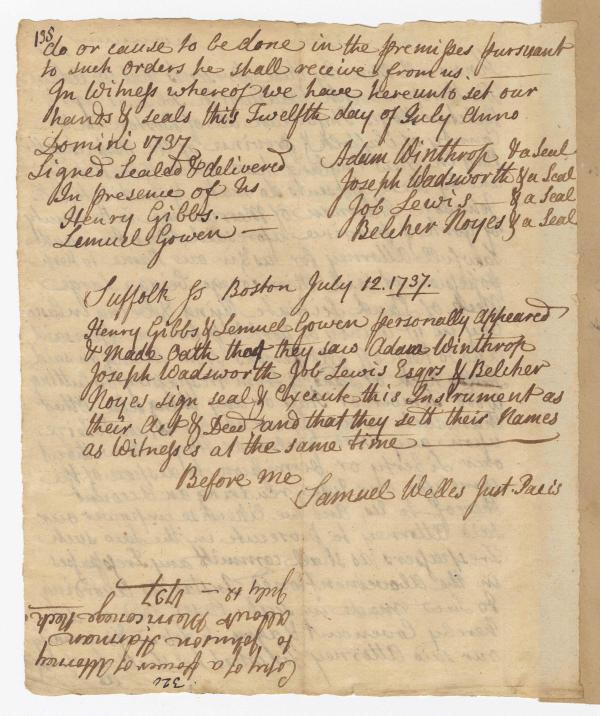 135
do or cause to be done in the premisses pursuant
to such orders he shall receive from us.
In Witness whereof we have hereunto set our
hands & seals this Twelfth day of July Anno
Domini 1737
Signed Sealed & delivered
In presence of Us
Henry Gibbs.
Lemuel Gowen
Adam Winthrop & a Seal
Joseph Wadsworth & a Seal
Job Lewis & a Seal
Belcher Noyes & a Seal
Suffolk ss Boston July 12. 1737.
Henry Gibbs & Lemuel Gowen personally appeared
& made Oath that they saw Adam Winthrop
Joseph Wadsworth Job Lewis Esqrs & Belcher
Noyes sign seal & Execute this Instrument as
their Act & Deed and that they sett their Names
as Witnesses at the same time
Before me
Samuel Welles Just. Pacis
326
Copy of a power of Attorney
to Johnson Harmon
about Merriconege Neck
July 12 - 1737